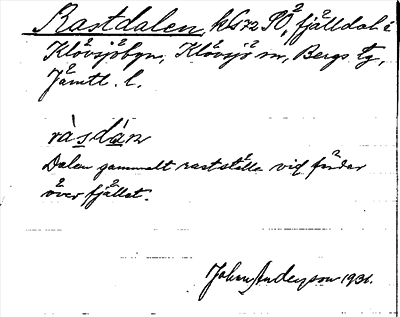 Rastdalen, kls 72 SO, fjälldal i
Klövsjöbyn, Klövsjö sn, Bergs tg,
Jämtl. l.
ràsdàn
Dalen gammalt rastställe vid färder
över fjället.
Johan Anderson 1931.